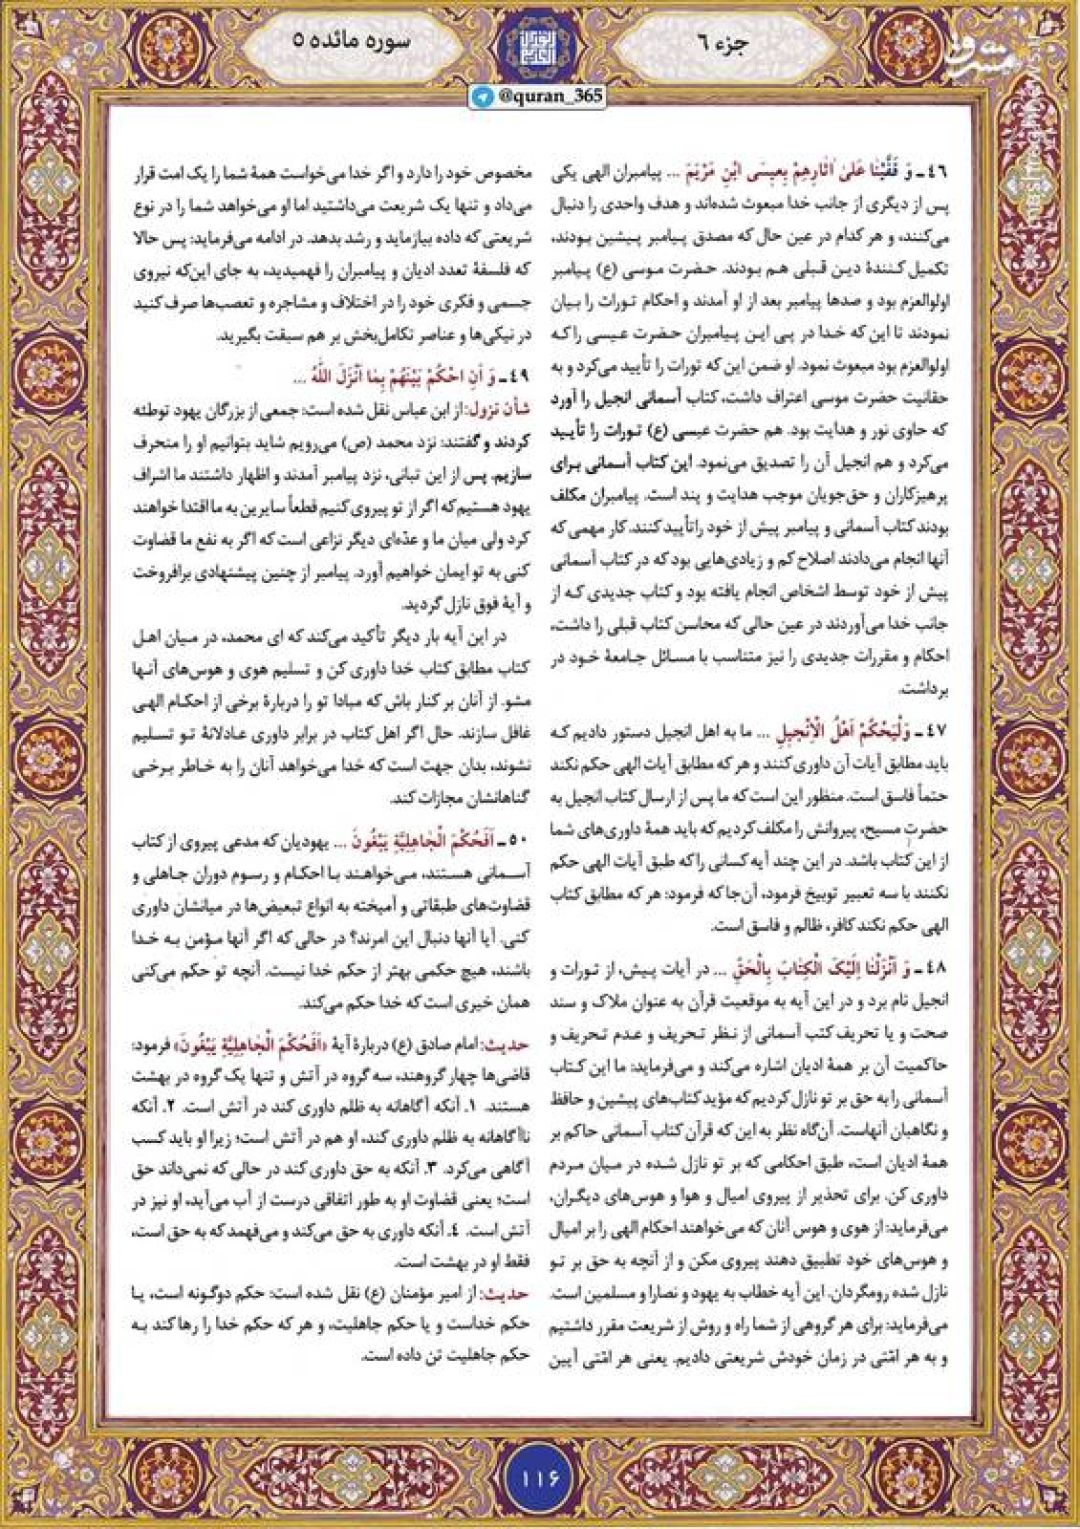 جزء ۶
سوره مائده ۵
@quran_365
۴۶ـ وَ قَفَّیْنٰا عَلیٰ اٰثٰارِهِمْ بِعیسَی ابْنِ مَرْیَمَ ... پیامبران الهی یکی
پس از دیگری از جانب خدا مبعوث شده‌اند و هدف واحدی را دنبال
می‌کنند، و هر کدام در عین حال که مصدق پیامبر پیشین بودند،
تکمیل کنندهٔ دین قبلی هم بودند. حضرت موسی (ع) پیامبر
اولوالعزم بود و صدها پیامبر بعد از او آمدند و احکام تورات را بیان
نمودند تا این که خدا در پی این پیامبران حضرت عیسی را که
اولوالعزم بود مبعوث نمود. او ضمن این که تورات را تأیید می‌کرد و به
حقانیت حضرت موسی اعتراف داشت، کتاب آسمانی انجیل را آورد
که حاوی نور و هدایت بود. هم حضرت عیسی (ع) تورات را تأیید
می‌کرد و هم انجیل آن را تصدیق می‌نمود. این کتاب آسمانی برای
پرهیزکاران و حق‌جویان موجب هدایت و پند است. پیامبران مکلف
بودند کتاب آسمانی و پیامبر پیش از خود را تأیید کنند. کار مهمی که
آنها انجام می‌دادند اصلاح کم و زیادی‌هایی بود که در کتاب آسمانی
پیش از خود توسط اشخاص انجام یافته بود و کتاب جدیدی که از
جانب خدا می‌آوردند در عین حالی که محاسن کتاب قبلی را داشت،
احکام و مقررات جدیدی را نیز متناسب با مسائل جامعهٔ خود در
برداشت.
۴۷ـ وَلْیَحْکُمْ اَهْلُ الْاِنْجیلِ ... ما به اهل انجیل دستور دادیم که
باید مطابق آیات آن داوری کنند و هر که مطابق آیات الهی حکم نکند
حتماً فاسق است. منظور این است که ما پس از ارسال کتاب انجیل به
حضرت مسیح، پیروانش را مکلف کردیم که باید همهٔ داوری‌های شما
از این کتاب باشد. در این چند آیه کسانی را که طبق آیات الهی حکم
نکنند با سه تعبیر توبیخ فرمود، آن‌جا که فرمود: هر که مطابق کتاب
الهی حکم نکند کافر، ظالم و فاسق است.
۴۸ـ وَ اَنْزَلْنٰا اِلَیْکَ الْکِتٰابَ بِالْحَقِّ ... در آیات پیش، از تورات و
انجیل نام برد و در این آیه به موقعیت قرآن به عنوان ملاک و سند
صحت و یا تحریف کتب آسمانی از نظر تحریف و عدم تحریف و
حاکمیت آن بر همهٔ ادیان اشاره می‌کند و می‌فرماید: ما این کتاب
آسمانی را به حق بر تو نازل کردیم که مؤید کتاب‌های پیشین و حافظ
و نگاهبان آنهاست. آن‌گاه نظر به این که قرآن کتاب آسمانی حاکم بر
همهٔ ادیان است، طبق احکامی که بر تو نازل شده در میان مردم
داوری کن. برای تحذیر از پیروی امیال و هوا و هوس‌های دیگران،
می‌فرماید: از هوی و هوس آنان که می‌خواهند احکام الهی را بر امیال
و هوس‌های خود تطبیق دهند پیروی مکن و از آنچه به حق بر تو
نازل شده رومگردان. این آیه خطاب به یهود و نصارا و مسلمین است.
می‌فرماید: برای هر گروهی از شما راه و روش از شریعت مقرر داشتیم
و به هر امّتی در زمان خودش شریعتی دادیم. یعنی هر امّتی آیین
مخصوص خود را دارد و اگر خدا می‌خواست همهٔ شما را یک امت قرار
می‌داد و تنها یک شریعت می‌داشتید اما او می‌خواهد شما را در نوع
شریعتی که داده بیازماید و رشد بدهد. در ادامه می‌فرماید: پس حالا
که فلسفهٔ تعدد ادیان و پیامبران را فهمیدید، به جای این‌که نیروی
جسمی و فکری خود را در اختلاف و مشاجره و تعصب‌ها صرف کنید
در نیکی‌ها و عناصر تکامل‌بخش بر هم سبقت بگیرید.
۴۹ـ وَ اَنِ احْکُمْ بَیْنَهُمْ بِمٰا اَنْزَلَ اللّٰهُ ...
شأن نزول: از ابن عباس نقل شده است: جمعی از بزرگان یهود توطئه
کردند و گفتند: نزد محمد (ص) می‌رویم شاید بتوانیم او را منحرف
سازیم. پس از این تبانی، نزد پیامبر آمدند و اظهار داشتند ما اشراف
یهود هستیم که اگر از تو پیروی کنیم قطعاً سایرین به ما اقتدا خواهند
کرد ولی میان ما و عدّه‌ای دیگر نزاعی است که اگر به نفع ما قضاوت
کنی به تو ایمان خواهیم آورد. پیامبر از چنین پیشنهادی برافروخت
و آیهٔ فوق نازل گردید.
در این آیه بار دیگر تأکید می‌کند که ای محمد، در میان اهل
کتاب مطابق کتاب خدا داوری کن و تسلیم هوی و هوس‌های آنها
مشو. از آنان بر کنار باش که مبادا تو را دربارهٔ برخی از احکام الهی
غافل سازند. حال اگر اهل کتاب در برابر داوری عادلانهٔ تو تسلیم
نشوند، بدان جهت است که خدا می‌خواهد آنان را به خاطر برخی
گناهانشان مجازات کند.
۵۰ـ اَفَحُکْمَ الْجٰاهِلِیَّةِ یَبْغُونَ ... یهودیان که مدعی پیروی از کتاب
آسمانی هستند، می‌خواهند با احکام و رسوم دوران جاهلی و
قضاوت‌های طبقاتی و آمیخته به انواع تبعیض‌ها در میانشان داوری
کنی. آیا آنها دنبال این امرند؟ در حالی که اگر آنها مؤمن به خدا
باشند، هیچ حکمی بهتر از حکم خدا نیست. آنچه تو حکم می‌کنی
همان خبری است که خدا حکم می‌کند.
حدیث: امام صادق (ع) دربارهٔ آیهٔ «اَفَحُکْمَ الْجٰاهِلِیَّةِ یَبْغُونَ» فرمود:
قاضی‌ها چهار گروهند، سه گروه در آتش و تنها یک گروه در بهشت
هستند. ۱. آنکه آگاهانه به ظلم داوری کند در آتش است. ۲. آنکه
ناآگاهانه به ظلم داوری کند، او هم در آتش است؛ زیرا او باید کسب
آگاهی می‌کرد. ۳. آنکه به حق داوری کند در حالی که نمی‌داند حق
است؛ یعنی قضاوت او به طور اتفاقی درست از آب می‌آید، او نیز در
آتش است. ۴. آنکه داوری به حق می‌کند و می‌فهمد که به حق است،
فقط او در بهشت است.
حدیث: از امیر مؤمنان (ع) نقل شده است: حکم دوگونه است، یا
حکم خداست و یا حکم جاهلیت، و هر که حکم خدا را رها کند به
حکم جاهلیت تن داده است.
۱۱۶